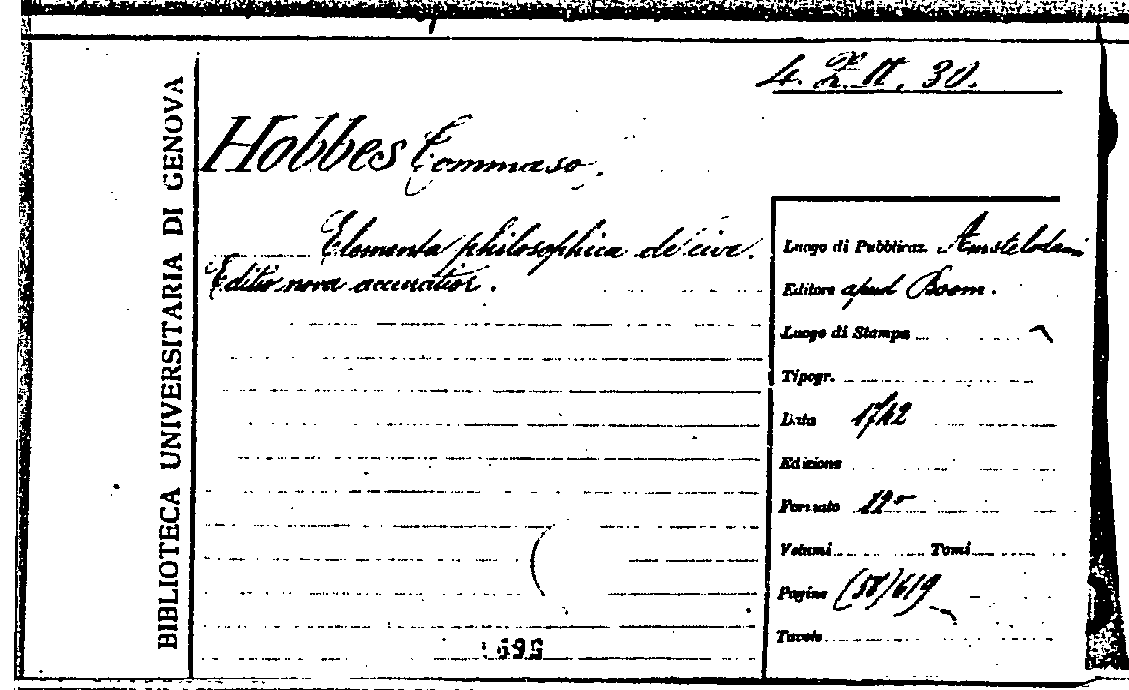 4. Z. II. 30.
BIBLIOTECA UNIVERSITARIA DI GENOVA
Hobbes Tommaso.
Elementa philosophica de cive.
Editio nova accuratior.
Luogo di Pubblicaz. Amstelodami
Editore apud Boom.
Luogo di Stampa
Tipogr.
Data 1742
Edizione
Formato 12°
Volumi Tomi
Pagine (58) 619
Tavole